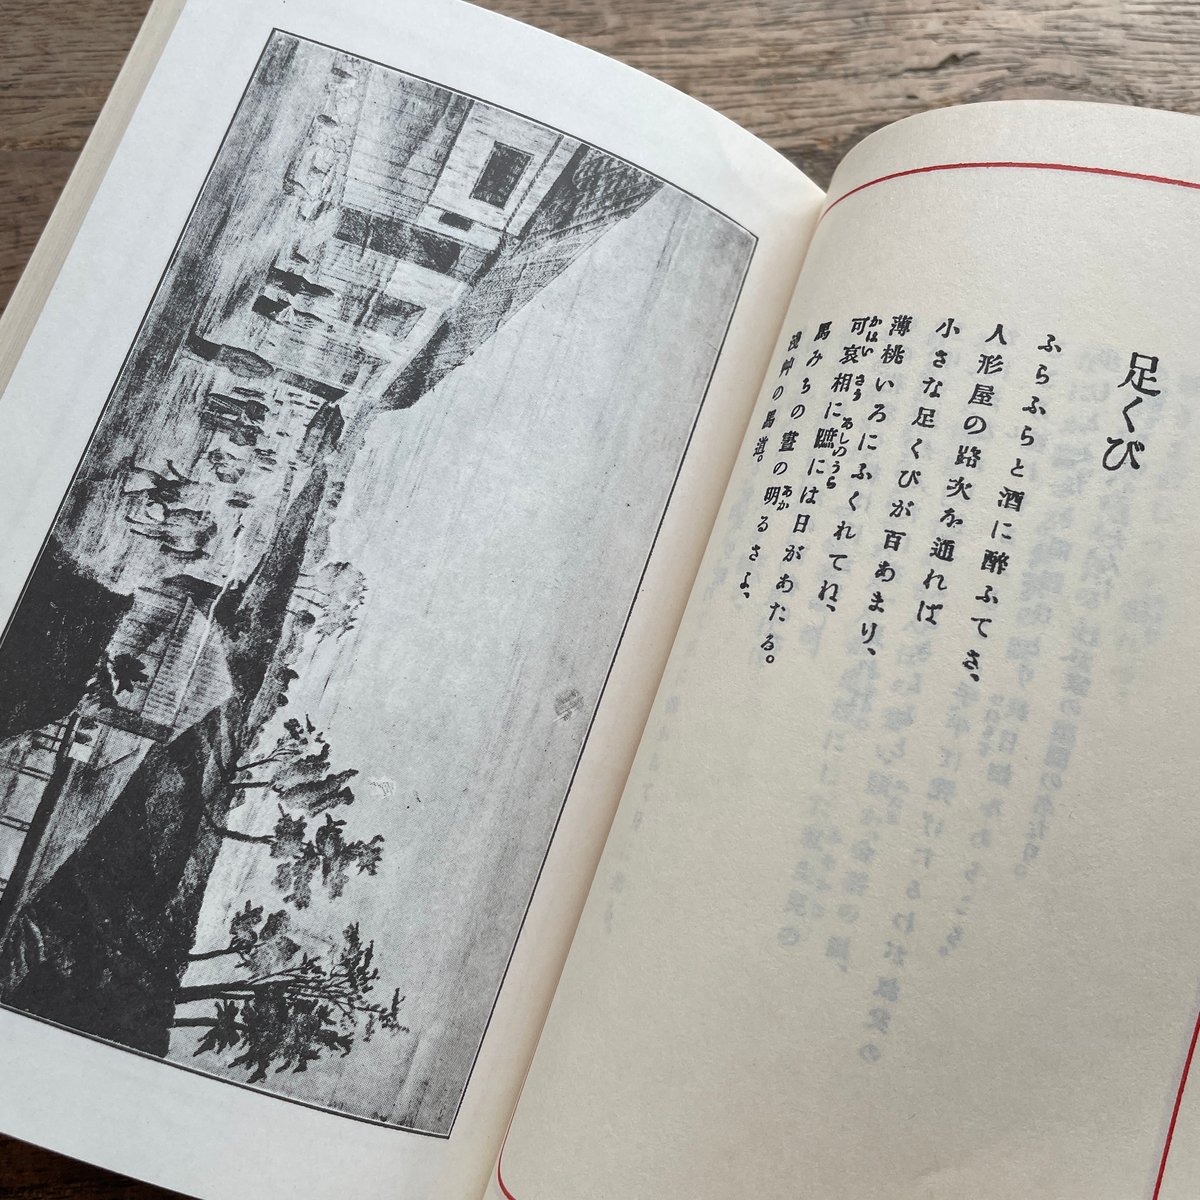 足くび
ふらふらと酒に醉ふてさ、
人形屋の路次を通れば
小さな足くびが百あまり、
薄桃いろにふくれてね、
可哀相に蹠には日があたる。
かはいさう あしのうら
馬みちの晝の明るさよ、
あか
淺艸の馬道。